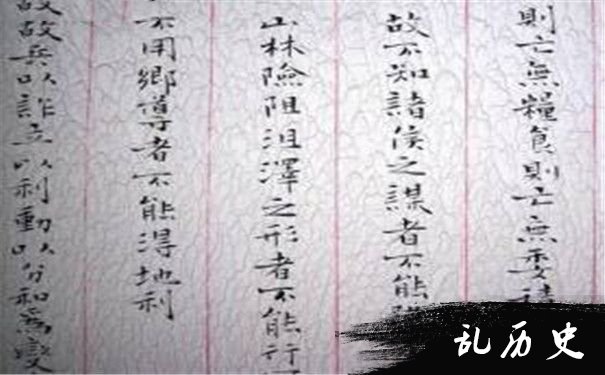 則亡無糧食則亡無委
故不知諸侯之謀者不能
山林險阻沮澤之形者不能行
不用鄉導者不能得地利
故兵以詐立以利動以分和為變
乱历史